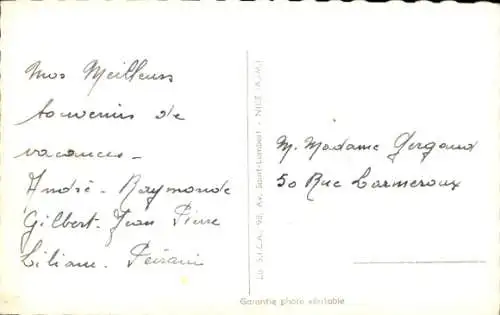 Nos Meilleurs
souvenirs de
vacances -
André - Raymonde
Gilbert - Jean Pierre
Liliane. Peirani
La S.I.C.A., 98, Av. Saint-Lambert - NICE (A.-M.)
M. Madame Gergaud
50 Rue Carmeroux
Garantie photo véritable